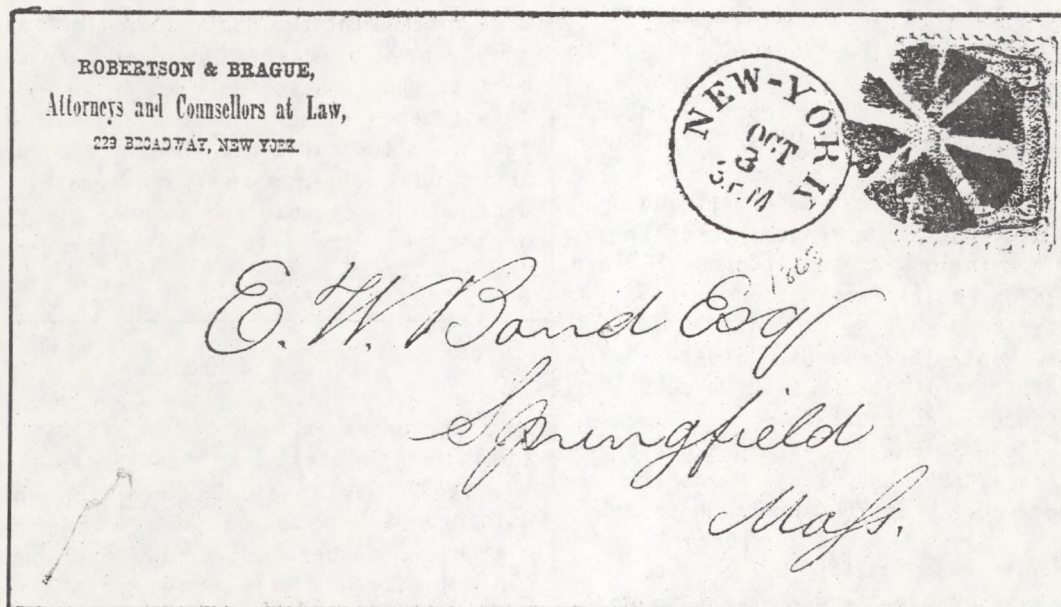 ROBERTSON & BRAGUE,
Attorneys and Counsellors at Law,
229 BROADWAY, NEW YORK.
NEW-YORK
OCT
3
3 P M
E. W. Bond Esq
Springfield
Mass.